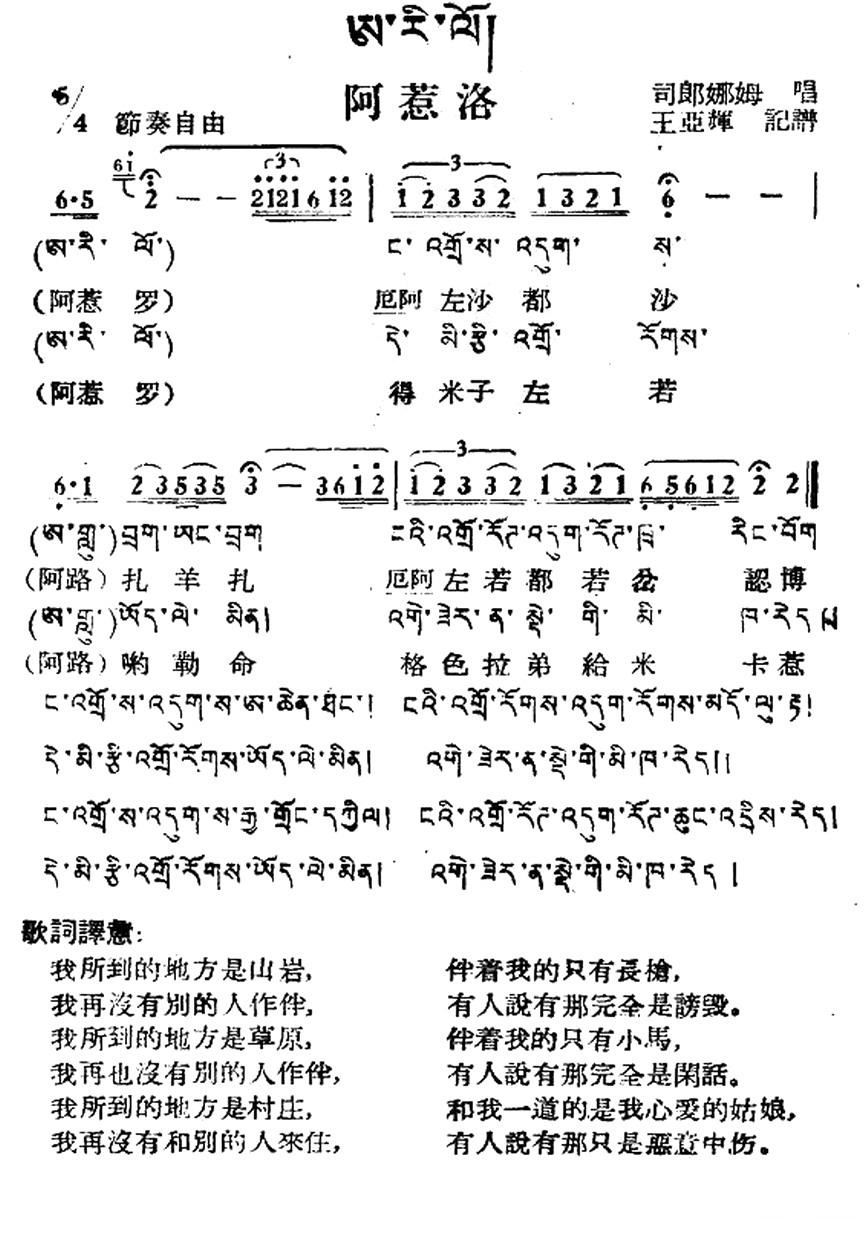 ཨ་རི་ལོ།
阿惹洛
司郎娜姆 唱
5/4 節奏自由
王亞輝 記譜
6·5 61 2 — — 2121 6 12 | 1 2 3 3 2 1321 6 — — |
(ཨ་རི་ ལོ་) ང་ འགྲོ་ས་ འདུག་ ས་
(阿惹 罗) 厄阿 左沙 都 沙
(ཨ་རི་ ལོ་) དེ་ མི་རྩི་ འགྲོ་ རོགས་
(阿惹 罗) 得 米子左 若
6·1 2 3535 3 — 3612 | 1 2 3 3 2 1321 65612 2 2 ‖
(ཨ་གླུ་)བྲག་ཡང་བྲག ངའི་འགྲོ་རོཊ་འདུག་རོཊ་ཁྲ་ རིང་བོག
(阿路)扎 羊 扎 厄阿 左 若 都 若 岔 認博
(ཨ་གླུ་)ཡོད་ལེ་ མིན། འགེ་ཟེར་ན་སྡེ་ གི་ མི་ ཁ་རེད།།
(阿路)喲 勒 命 格 色 拉 弟 給 米 卡 惹
ང་འགྲོ་ས་འདུག་ས་ཨ་ཆེན་ཐང་། ངའི་འགྲོ་རོགས་འདུག་རོགས་མདོ་ལུ་རྟ།
དེ་མི་རྩི་འགྲོ་རོགས་ཡོད་ལེ་མིན། འགེ་ཟེར་ན་སྡེ་གི་མི་ཁ་རེད།།
ང་འགྲོ་ས་འདུག་ས་རྒྱ་གྲོང་དཀྱིལ། ངའི་འགྲོ་རོཊ་འདུག་རོཊ་ཆུང་འདྲིས་རེད།
དེ་མི་རྩི་འགྲོ་རོགས་ཡོད་ལེ་མིན། འགེ་ཟེར་ན་སྡེ་གི་མི་ཁ་རེད།
歌詞譯意:
我所到的地方是山岩, 伴着我的只有長槍,
我再沒有別的人作伴, 有人說有那完全是謗毀。
我所到的地方是草原, 伴着我的只有小馬,
我再也沒有別的人作伴, 有人說有那完全是閑話。
我所到的地方是村庄, 和我一道的是我心愛的姑娘,
我再沒有和別的人來住, 有人說有那只是惡意中伤。